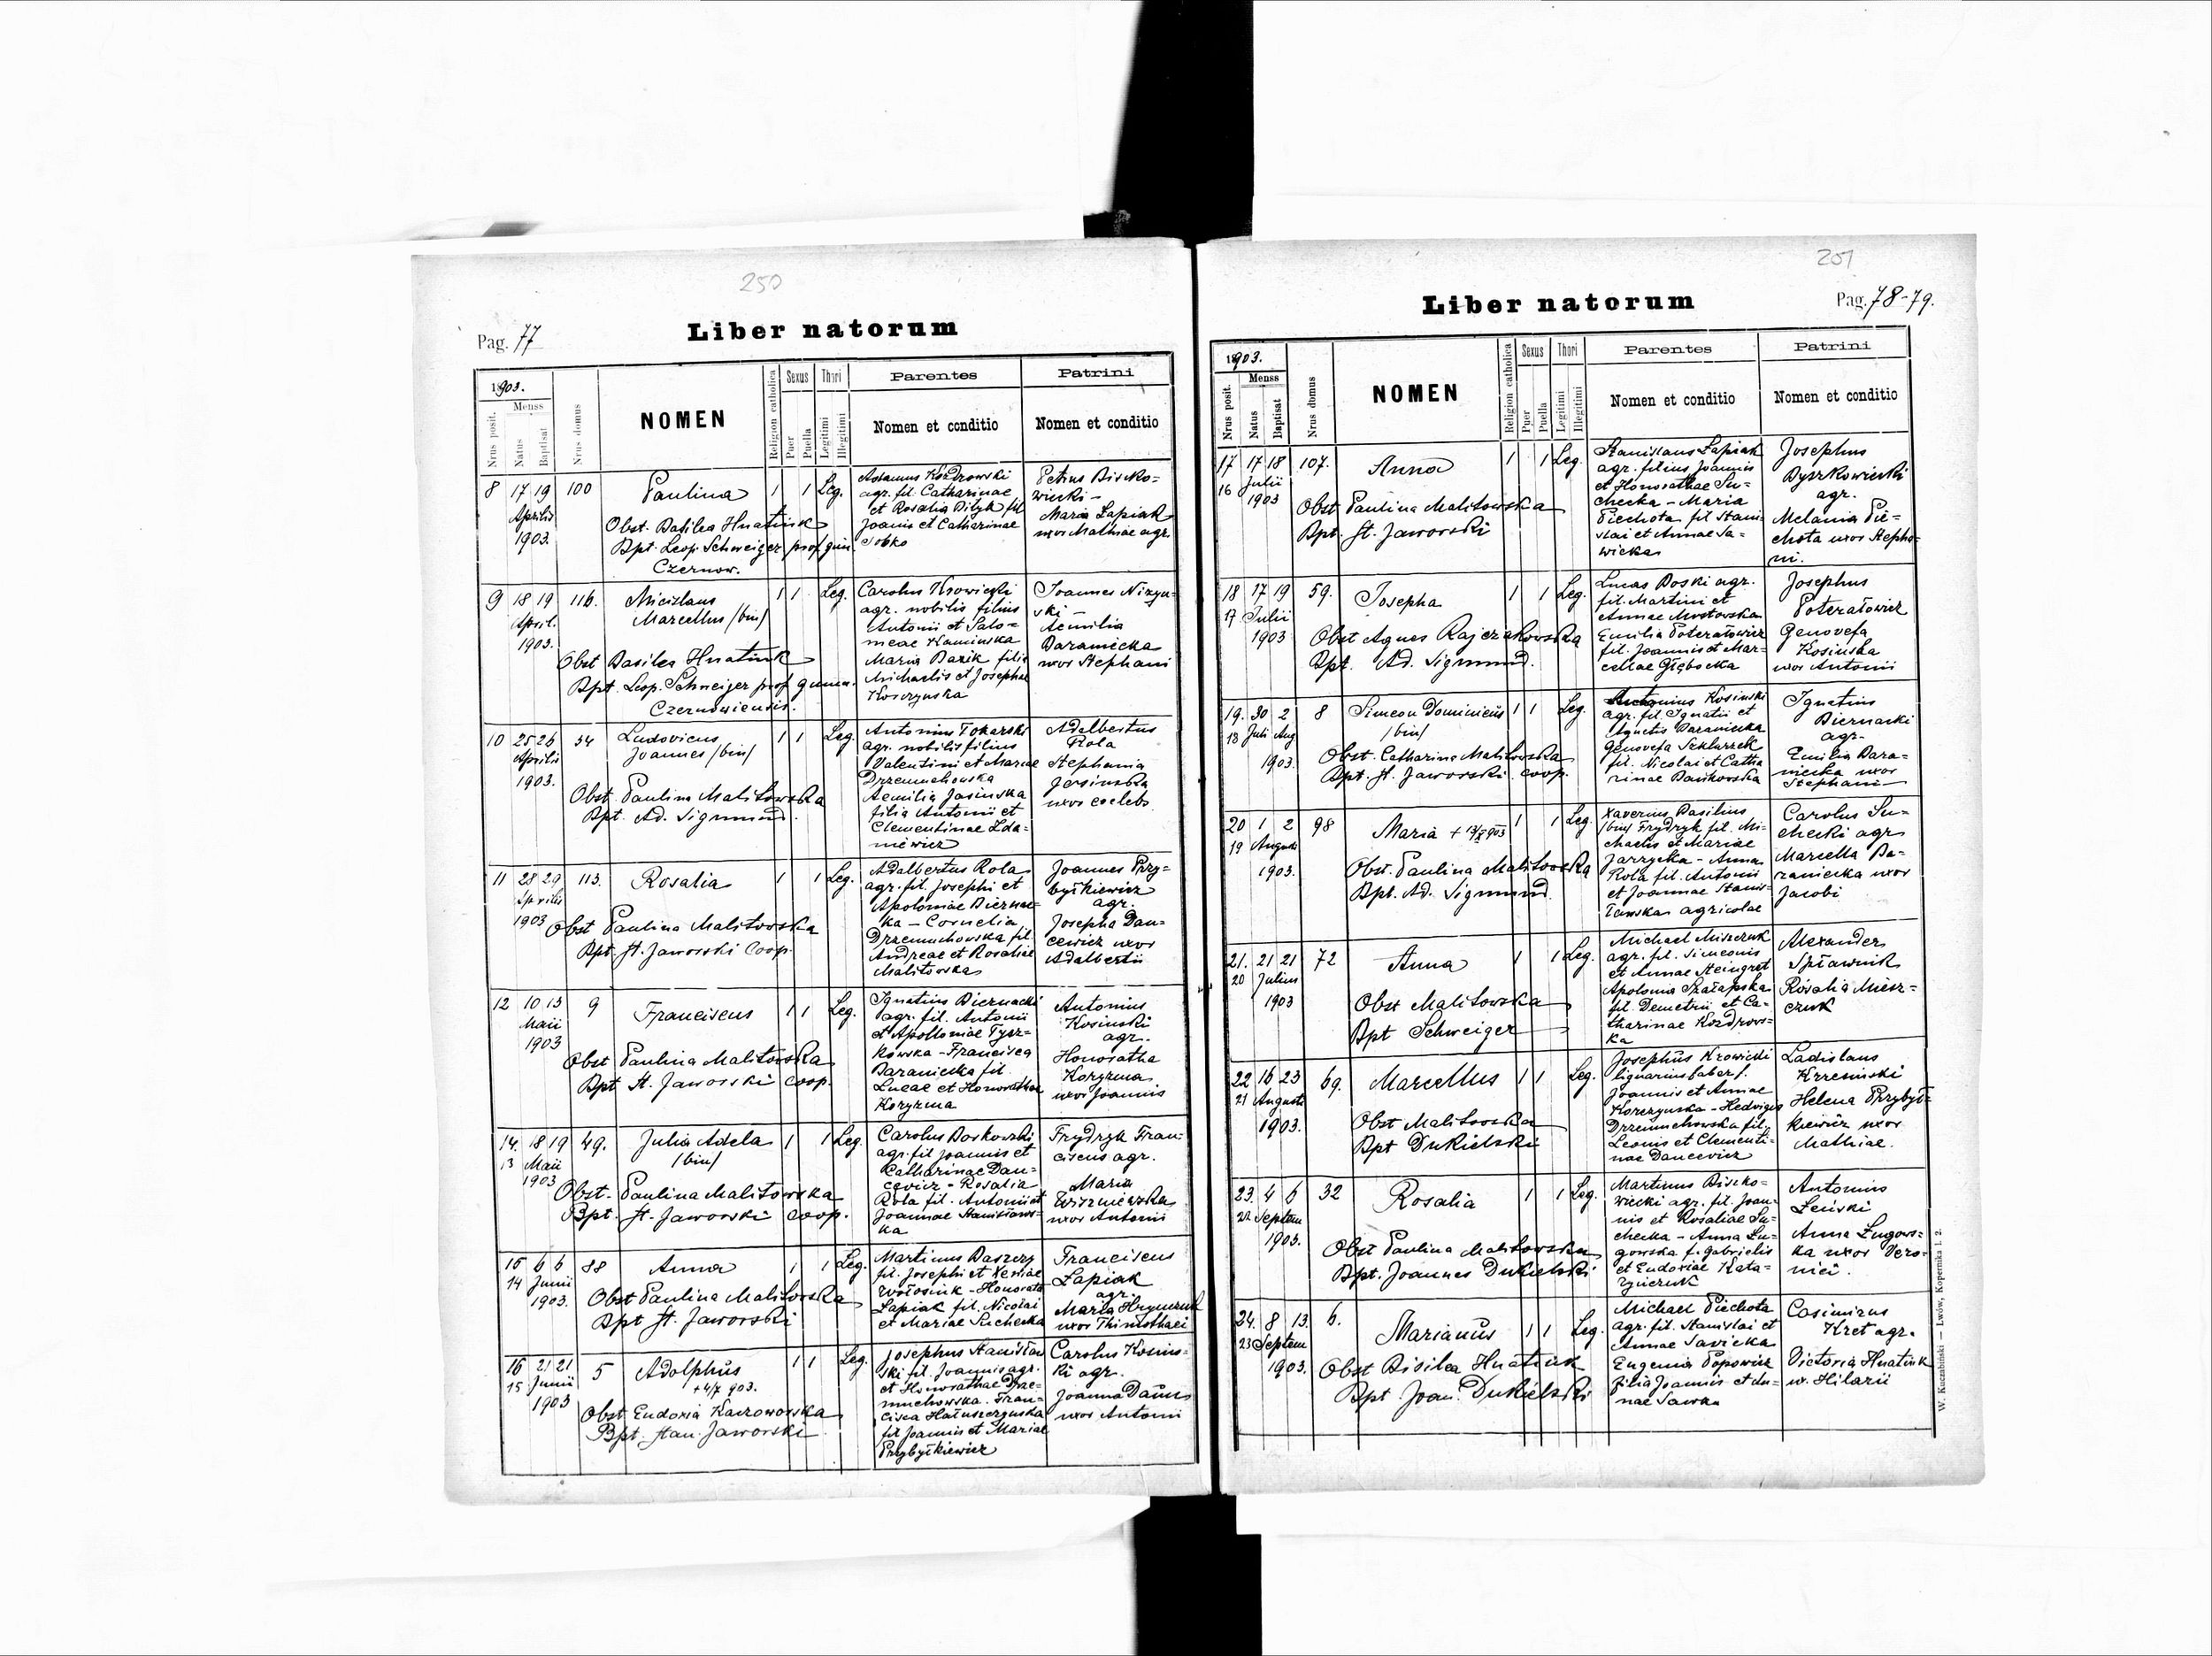 250
Pag. 77
Liber natorum
1903.
Nrus posit.
Menss
Natus
Baptisat
Nrus domus
NOMEN
Religion catholica
Sexus
Puer
Puella
Thori
Legitimi
Illegitimi
Parentes
Nomen et conditio
Patrini
Nomen et conditio
8 17 19 100 Paulina 1 1 Leg.
Aprilis
1903.
Obst. Basilea Hnatiuk
Bpt. Leop. Schweiger prof gim.
Czernow.
Adamus Kozdrowski
agr. fil. Catharinae
et Rosalia Dityk fil
Joanis et Catharinae
Sobko
Petrus Bisko-
wiecki -
Maria Lapiak
uxor Mathiae agr.
9 18 19 116. Miecislaus 1 1 Leg.
Marcellus /bin/
April.
1903.
Obst Basilea Hnatiuk
Bpt. Leop. Schweiger prof gimn.
Czernowiensis.
Carolus Krowicki
agr. nobilis filius
Antonii et Salo=
meae Kaminska
Maria Bazik filia
Michaelis et Josephae
Korczynska
Joannes Nizyn-
ski -
Aemilia
Baraniecka
uxor Stephani
10 25 26 54 Ludovicus 1 1 Leg.
Joannes /bin/
Aprilis
1903.
Obst. Paulina Malitowska
Bpt. Ad. Sigmund.
Antonius Tokarski
agr. nobilis filius
Valentini et Mariae
Drzemuchowska
Aemilia Jasinska
filia Antonii et
Clementinae Zda=
niewicz
Adalbertus
Rola
Stephania
Jasinska
uxor coelebs
11 28 29 113. Rosalia 1 1 Leg.
Aprilis
1903
Obst Paulina Malitowska
Bpt. St. Jaworski Coop.
Adalbertus Rola
agr. fil. Josephi et
Apoloniae Biernac-
ka - Cornelia
Drzemuchowska fil.
Andreae et Rosaliae
Malitowska
Joannes Przy-
byłkiewicz
agr.
Josepha Dan=
cewicz uxor
Adalbertii
12 10 13 9 Franciscus 1 1 Leg.
Maii
1903
Obst Paulina Malitowska
Bpt St. Jaworski coop.
Ignatius Biernacki
agr. fil. Antonii
et Apolloniae Tysz=
kowska - Francisca
Baraniecka fil
Lucae et Honorathae
Koryzma
Antonius
Kosinski
agr.
Honoratha
Koryzma
uxor Joannis
14. 18 19 49. Julia Adela 1 1 Leg.
13 Maii /bin/
1903
Obst. Paulina Malitowska
Bpt. St. Jaworski coop.
Carolus Boskowski
agr. fil Joannis et
Catharinae Dan=
cewicz - Rosalia
Rola fil. Antonii et
Joannae Stanisławs-
ka
Frydryk Fran=
ciscus agr.
Maria
Wiszniewska
uxor Antonii
15 6 6 88 Anna 1 1 Leg.
14 Junii
1903.
Obst Paulina Malitowska
Bpt St. Jaworski
Martinus Baszczy
fil. Josephi et Xeniae
Wołosiuk - Honorata
Lapiak fil. Nicolai
et Mariae Suchecka
Franciscus
Lapiak
agr.
Maria Hrynczuk
uxor Thimothaei
16 21 21 5 Adolphus 1 1 Leg.
15 Junii +4/7 903.
1903
Obst Eudoxia Kaczorowska
Bpt. Stan. Jaworski
Josephus Stanisław
ski fil. Joannis agr.
et Honorathae Drze=
muchowska. Fran=
cisca Hałuszczynska
fil Joannis et Mariae
Przybyłkiewicz
Carolus Kosins-
ki agr.
Joanna Daūns
uxor Antonii
251
Liber natorum
Pag. 78-79.
1903.
Nrus posit.
Menss
Natus
Baptisat
Nrus domus
NOMEN
Religion catholica
Sexus
Puer
Puella
Thori
Legitimi
Illegitimi
Parentes
Nomen et conditio
Patrini
Nomen et conditio
17 17 18 107. Anna 1 1 Leg.
16 Julii
1903
Obst Paulina Malitowska
Bpt. St. Jaworski
Stanislaus Lapiak
agr. filius Joannis
et Honorathae Su=
checka - Maria
Piechota fil Stani-
slai et Annae Sa=
wicka
Josephus
Byszkowiecki
agr.
Melania Pie=
chota uxor Stepha-
ni.
18 17 19 59. Josepha 1 1 Leg.
17 Julii
1903
Obst Agnes Rajczakowska
Bpt. Ad. Sigmund.
Lucas Boski agr.
fil. Martini et
Annae Mostowska
Emilia Poterałowicz
fil. Joannis et Mar=
cellae Głębocka
Josephus
Poterałowicz
Genovefa
Kosinska
uxor Antonii
19. 30 2 8 Simeon Dominicus 1 1 Leg.
18 Juli Aug /bin/
1903.
Obst. Catharina Malitowska
Bpt. St. Jaworski coop.
Antonius Kosinski
agr. fil. Ignatii et
Agnetis Baraniecka
Genovefa Szklarzek
fil. Nicolai et Catha
rinae Bańkowska
Ignatius
Biernacki
agr.
Emilia Bara=
niecka uxor
Stephani
20 1 2 98 Maria + 13/X 903 1 1 Leg.
19 Augusti
1903.
Obst. Paulina Malitowska
Bpt. Ad. Sigmund.
Xaverius Basilius
/bin/ Frydryk fil. Mi-
chaelis et Mariae
Jarzycka - Anna
Rola fil. Antonii
et Joannae Stanis-
ławska agricolae
Carolus Su=
checki agr
Marcella Ba=
raniecka uxor
Jacobi
21. 21 21 72 Anna 1 1 Leg.
20 Julius
1903
Obst Malitowska
Bpt Schweiger
Michael Miszczuk
agr. fil. Simeonis
et Annae Steingret
Apolonia Szałapska
fil. Demetrii et Ca=
tharinae Kozdrows=
ka
Alexander
Spławnik
Rosalia Miesz=
czuk
22 16 23 69. Marcellus 1 1 Leg.
21 Augusti
1903.
Obst Malitowska
Bpt Dukielski
Josephus Krowicki
lignarius faber f.
Joannis et Annae
Korczynska - Hedvigis
Drzemuchowska fil.
Leonis et Clementi-
nae Dancevicz
Ladislaus
Krzesinski
Helena Przybył=
kiewicz uxor
Mathiae.
23. 4 6 32 Rosalia 1 1 Leg.
22 Septem
1903.
Obst Paulina Malitowska
Bpt. Joannes Dukielski
Martinus Bisko-
wiecki agr. fil. Joan-
nis et Rosaliae Su=
checka - Anna Łu-
gowska f. Gabrielis
et Eudoxiae Kata-
rynczuk
Antonius
Leński
Anna Ługows=
ka uxor Vero-
nici.
24. 8 13. 6. Marianus 1 1 Leg.
23 Septem
1903.
Obst Bisilea Hnatiuk
Bpt. Joan. Dukielski
Michael Piechota
agr. fil. Stanislai et
Annae Savicka
Eugenia Popowicz
filia Joannis et An-
nae Sawka
Casimirus
Kret agr.
Victoria Hnatiuk
u. Hilarii
W. Kuczabiński — Lwów, Kopernika l. 2.